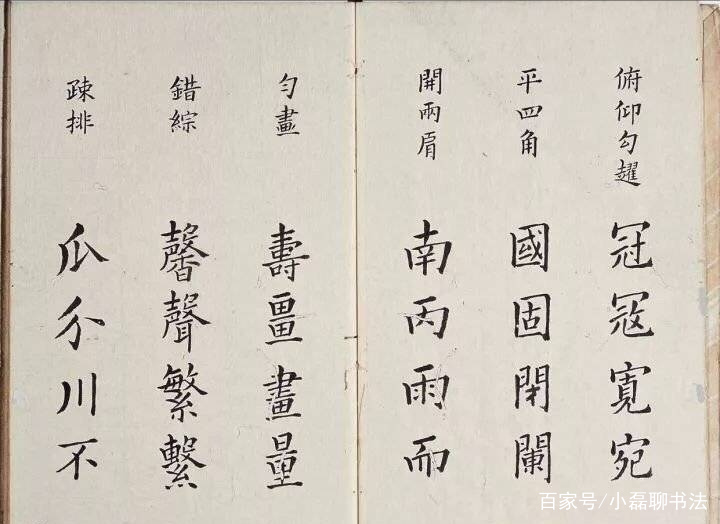 俯仰勾趯
冠冦寬宛
平四角
國固閉闌
開兩肩
南丙雨而
勻畫
壽畺畫量
錯綜
馨聲繁繫
疎排
瓜介川不
百家号/小磊聊书法